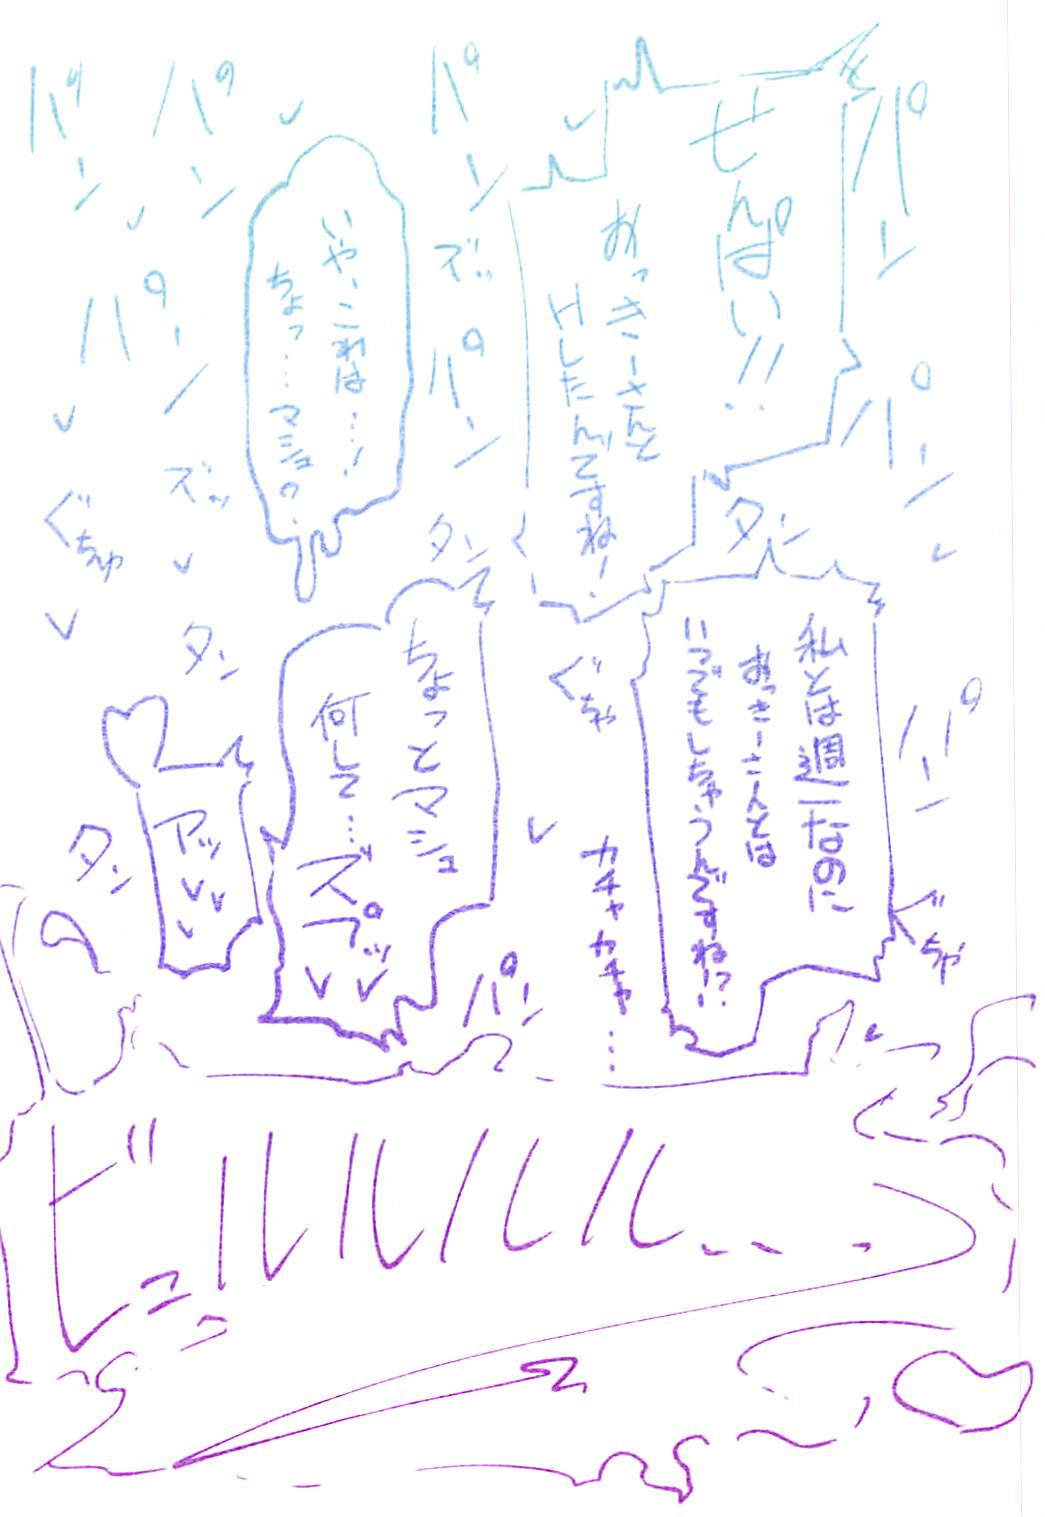 せんぱい!!
おっきーさんと
Hしたんですね!
いや、これは…!
ちょっ…マシュっ
私とは週一なのに
おっきーさんとは
いつでもしちゃうんですね!?
ちょっとマシュ
何して…
ズプッ
アッ
パン
パン
パン
パン
パン
パン
パン
パン
パン
ズッ
ズッ
タン
タン
タン
タン
ぐちゅ
ぐちゅ
ぐちゅ
カチャカチャ…
ビュルルルル…